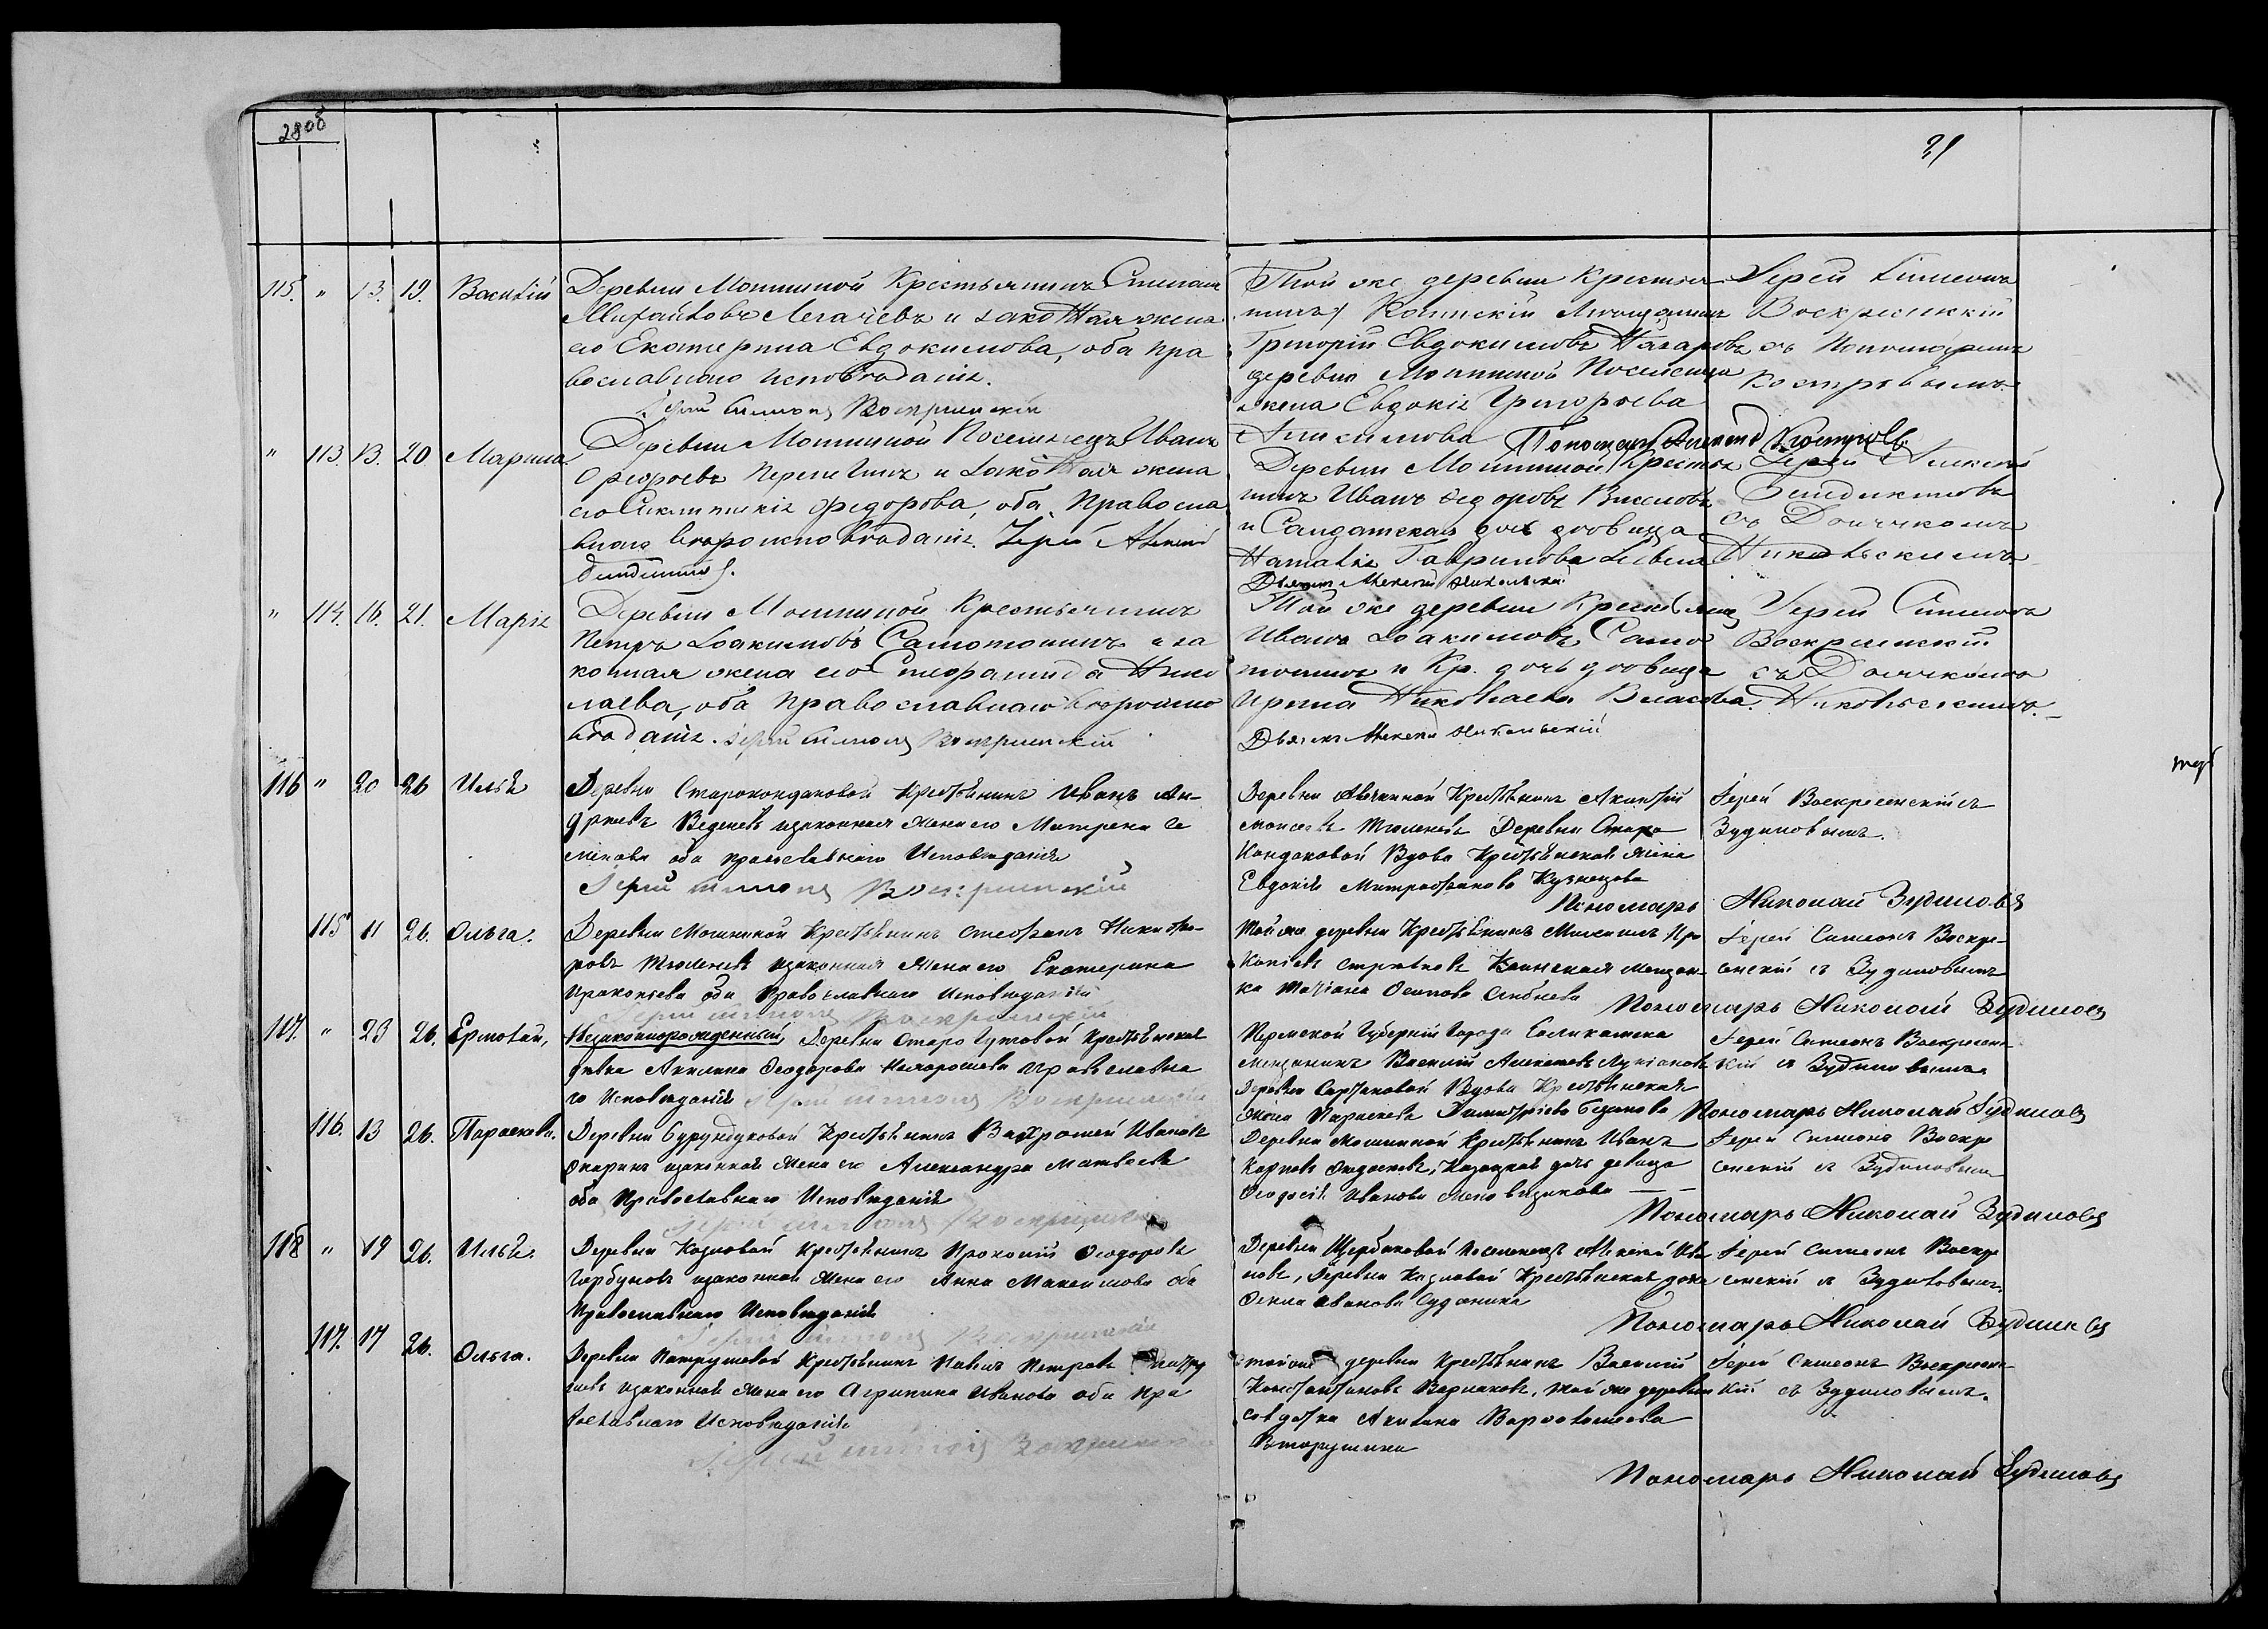 28об
31
115. " 13. 19. Василій Деревни Мошниной Крестьянинъ Степанъ
Михайловъ Легачевъ и законная жена
его Екатерина Евдокимова, оба пра
вославнаго исповѣданія.
Іерей Симеонъ Воскресенскій
Той же деревни Крестья
нинъ Каинскій Мещанинъ
Григорій Евдокимовъ Назаровъ
деревни Мошниной Поселенца
жена Евдокія Григорьева
Анисимова Пономарь Костровъ
Іерей Симеонъ
Воскресенскій
съ Пономаремъ
Костровымъ
" 113. 13. 20. Марина. Деревни Мошниной Поселенецъ Иванъ
и законная жена
его Федорова, оба Правосла
внаго вѣроисповѣданія. Іерей Алексій
Деревни Мошниной Крестья
нинъ Иванъ Федоровъ
и Солдатская дочь дѣвица
Наталія Гаврилова
Дьячекъ Алексѣй Никольскій
Іерей Алексій
съ Дьячкомъ
Никольскимъ
" 114. 16. 21. Марія Деревни Мошниной Крестьянинъ
Петръ Іоакимовъ Самотошинъ и за
конная жена его Нико
лаева, оба православнаго вѣроиспо
вѣданія. Іерей Симеонъ Воскресенскій
Той же деревни Крестьянинъ
Иванъ Іоакимовъ Само
тошинъ и Кр. дочь дѣвица
Ирина Николаева Власова.
Дьячекъ Алексѣй Никольскій
Іерей Симеонъ
Воскресенскій
съ Дьячкомъ
Никольскимъ.
116 " 20 26 Илья Деревни Старокондаковой Крестьянинъ Иванъ Ан-
дреевъ Веденевъ изаконная Жена его Матрена Се
менова оба православнаго Исповѣданія
Іерей Симеонъ Воскресенскій
Деревни Крестьянинъ
Моисеевъ Тюленевъ Деревни Старо
Кондаковой Вдова Крестьянская Жена
Евдокія Митрофанова Кузнецова
Пономарь Николай Зудиловъ
Іерей Воскресенскій съ
Зудиловымъ.
115 11 26. Ольга. Деревни Мошниной Крестьянинъ Стефанъ Никифо-
ровъ Тюленевъ изаконная Жена его Екатерина
Прокопьева оба Православнаго Исповѣданія
Іерей Симеонъ Воскресенскій
Той же деревни Крестьянинъ Михаилъ Про
копьевъ Каинская мещан-
ка Татіана Осипова
Пономарь Николай Зудиловъ
Іерей Симеонъ Воскре-
сенскій съ Зудиловымъ
117. " 23 26. Ермолай, Незаконнорожденный, Деревни Старо Гутовой Крестьянская
дѣвка Акилина Феодорова православна
го Исповѣданія Іерей Симеонъ Воскресенскій
Пермской Губерніи Города Соликамска
мещанинъ Василій Алексѣевъ
Деревни Вдова Крестьянская
Жена Параскева Димитріева Пономарь Николай Зудиловъ
Іерей Симеонъ Воскресенс-
кій съ Зудиловымъ
116. 13 26. Параскева. Деревни Бурундуковой Крестьянинъ Вахромей Ивановъ
изаконная Жена его Александра Матвеева
оба Православнаго Исповѣданія
Іерей Симеонъ Воскресенскій
Деревни Мошниной Крестьянинъ Иванъ
Карповъ Казацкая дочь девица
Феодосія Иванова
Пономарь Николай Зудиловъ
Іерей Симеонъ Воскре
сенскій съ Зудиловымъ
118 " 19 26. Илья. Деревни Козловой Крестьянинъ Прокопій Феодоровъ
Горбуновъ изаконная Жена его Анна Максимова оба
Православнаго Исповѣданія
Іерей Симеонъ Воскресенскій
Деревни Щербаковой Поселенецъ Алексѣй Ива
новъ, Деревни Козловой Крестьянская дочь
Иванова
Пономарь Николай Зудиловъ
Іерей Симеонъ Воскре
сенскій съ Зудиловымъ
117. 17 26. Ольга. Деревни Патрушевой Крестьянинъ Павелъ Петровъ Патру
шевъ изаконная Жена его Агрипина Иванова оба пра
вославнаго Исповѣданія
Іерей Симеонъ Воскресенскій
той же деревни Крестьянинъ Василій
Константиновъ Варлаковъ, той же деревни
солдатка Акилина Варфоломеева
Вторушина
Пономарь Николай Зудиловъ
Іерей Симеонъ Воскресенс-
кій съ Зудиловымъ.